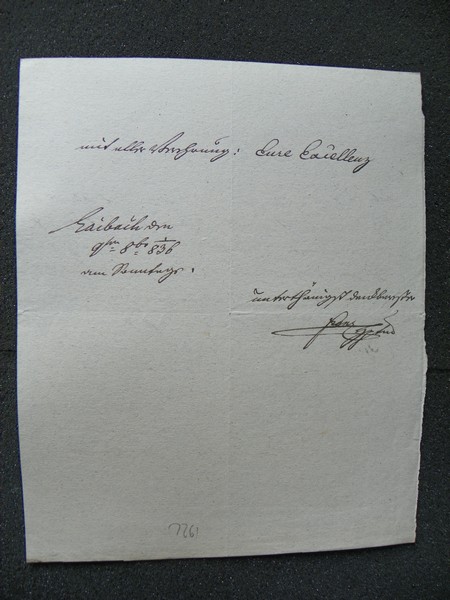 mit aller Verehrung: Eure Excellenz
Laibach den
9ten 8ber 836
am Sonntage.
unterthänigst dankbarster
Franz